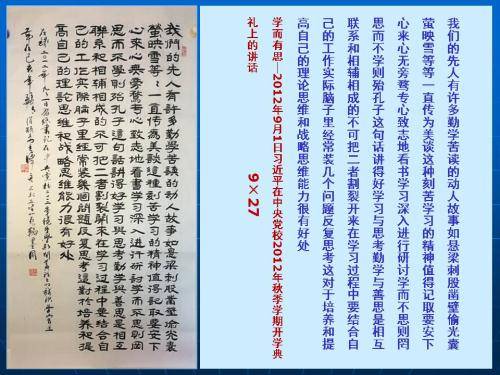 我們的先人有許多勤學苦讀的动人故事如悬梁刺股凿壁偷光囊
萤映雪等等一直传为美談這種刻苦學習的精神值得記取要安下
心来心无旁骛专心致志地看書學習深入進行研討學而不思則罔
思而不學則殆孔子這句話講得好學習与思考勤學与善思是相互
联系和相辅相成的不可把二者割裂開来在學習过程中要结合自
己的工作实際脑子里经常装幾個問題反复思考這對於培养和提
高自己的理論思維和战略思維能力很有好处
我们的先人有许多勤学苦读的动人故事如悬梁刺股凿壁偷光囊
萤映雪等等一直传为美谈这种刻苦学习的精神值得记取要安下
心来心无旁骛专心致志地看书学习深入进行研讨学而不思则罔
思而不学则殆孔子这句话讲得好学习与思考勤学与善思是相互
联系和相辅相成的不可把二者割裂开来在学习过程中要结合自
己的工作实际脑子里经常装几个问题反复思考这对于培养和提
高自己的理论思维和战略思维能力很有好处
学而有思—2012年9月1日习近平在中央党校2012年秋季学期开学典
礼上的讲话 9×27